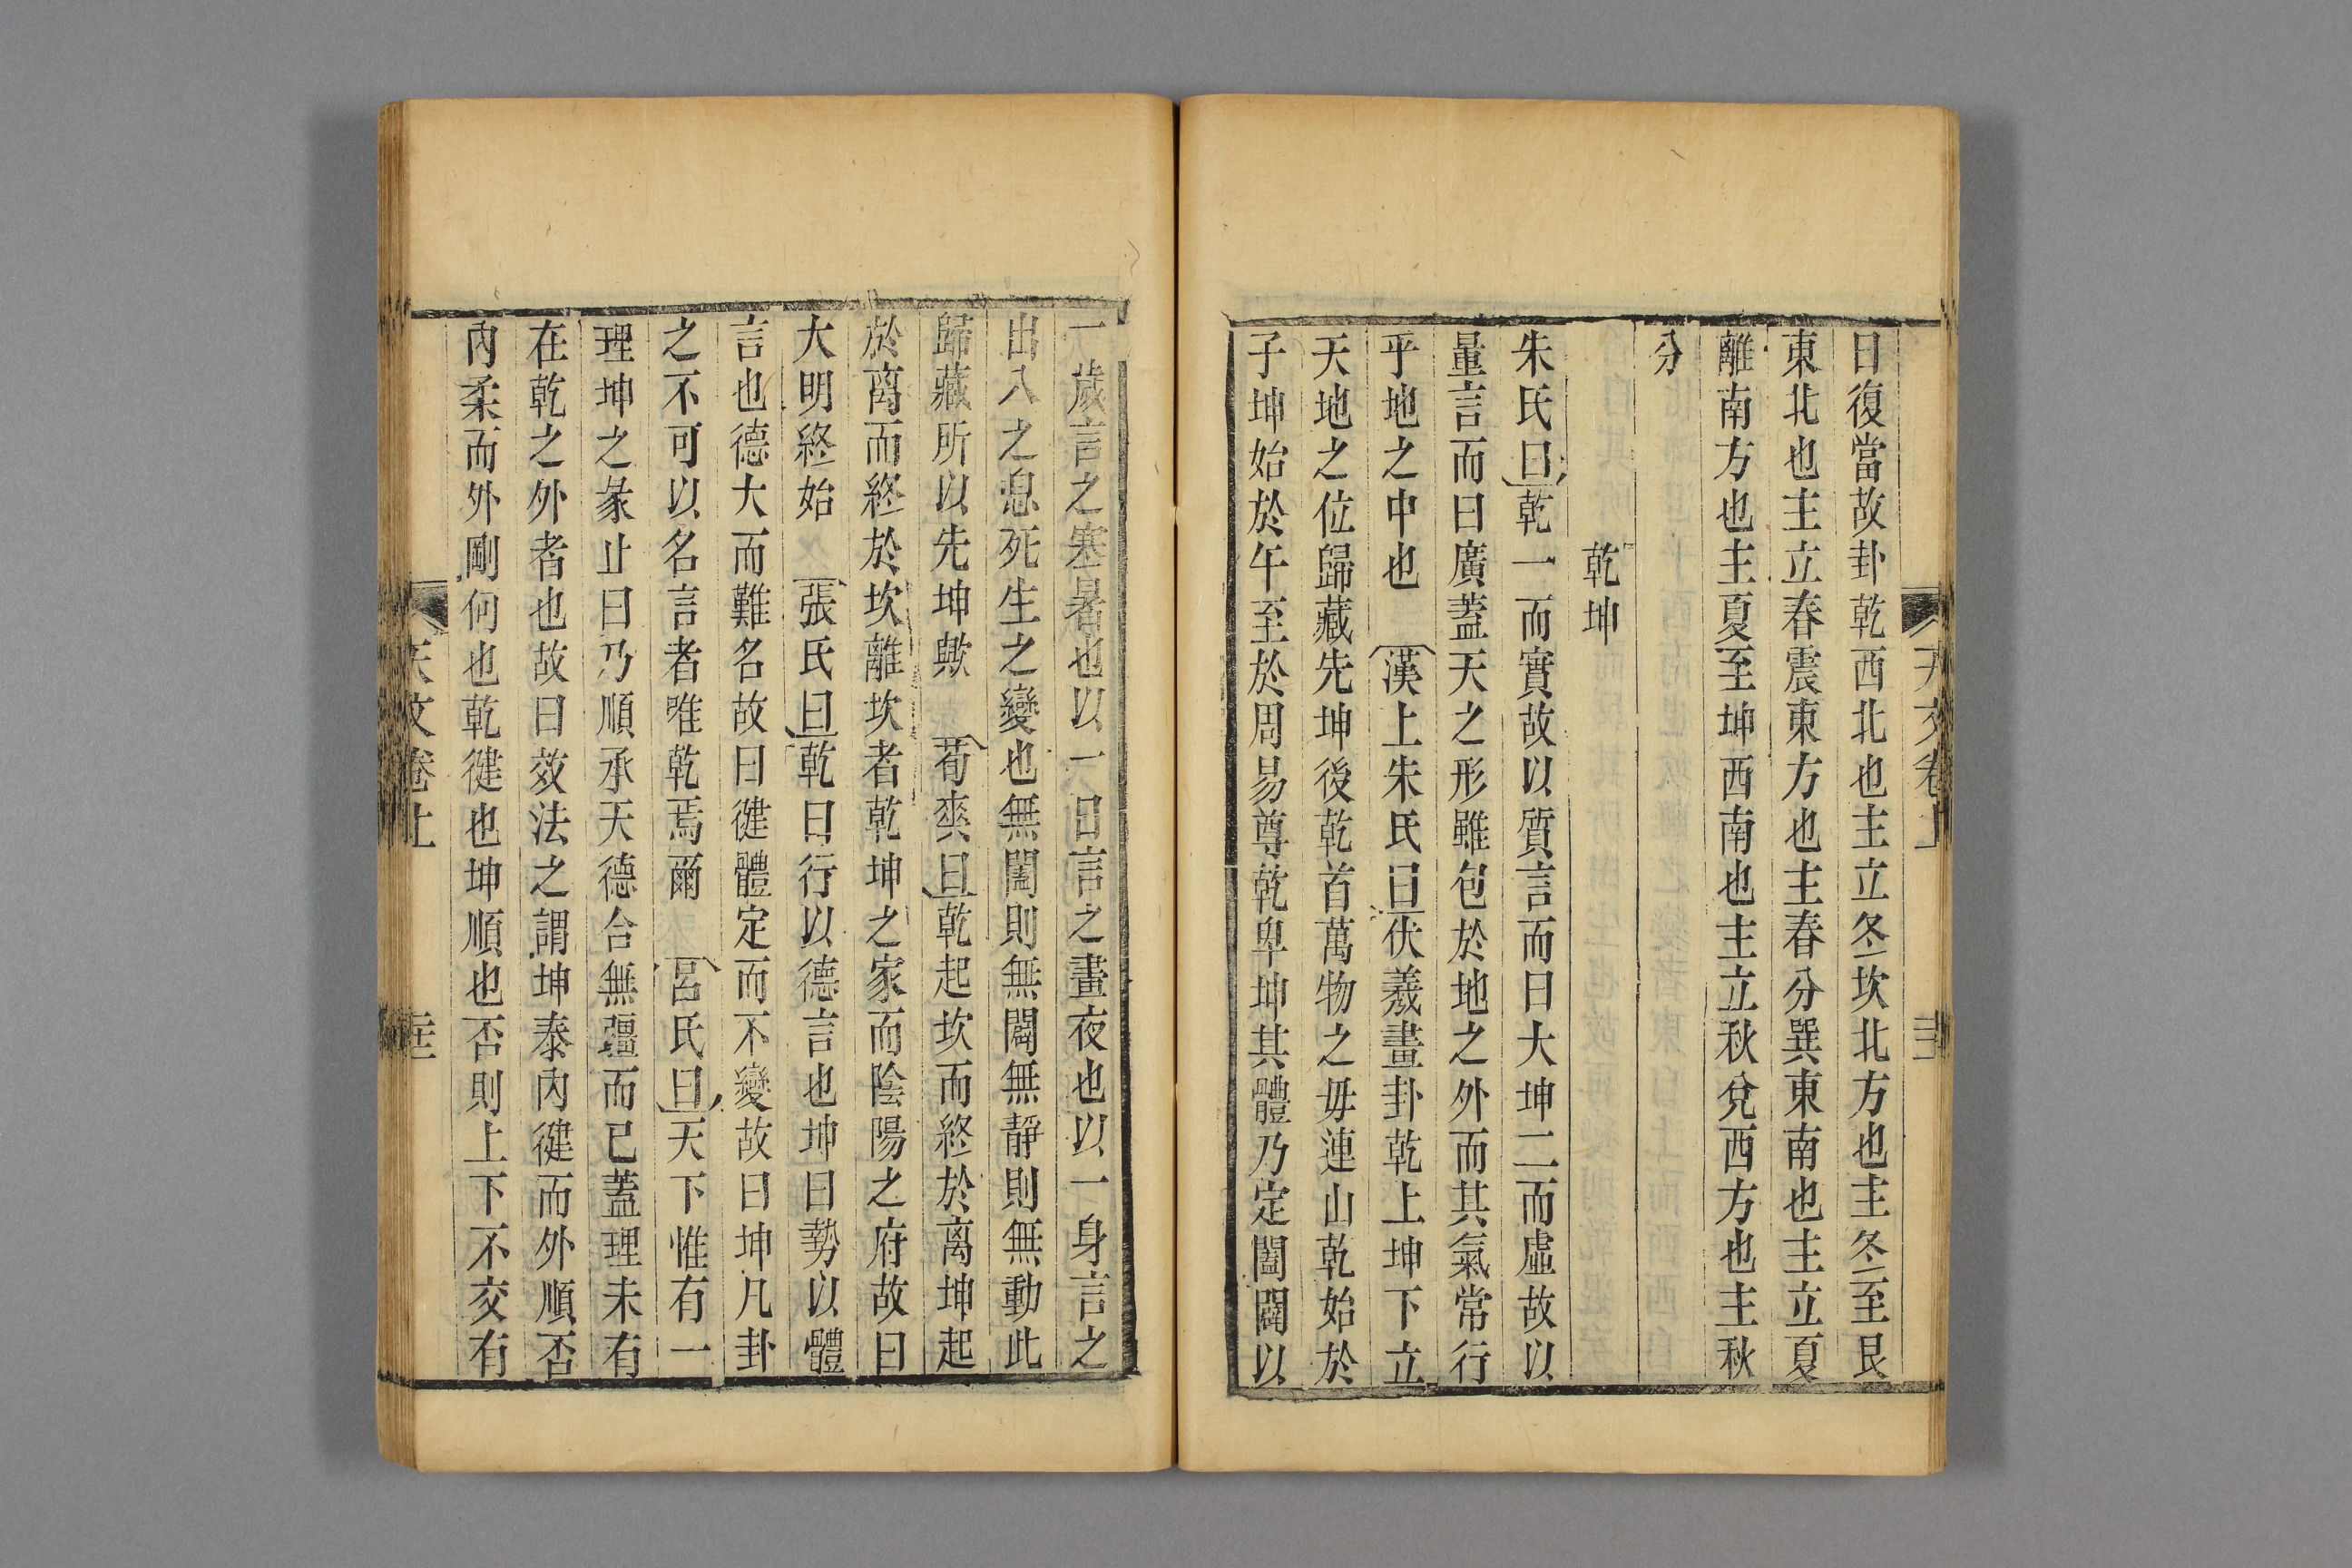 日復當故卦乾西北也主立冬坎北方也主冬至艮
東北也主立春震東方也主春分巽東南也主立夏
離南方也主夏至坤西南也主立秋兌西方也主秋
分
乾坤
朱氏曰乾一而實故以質言而曰大坤二而虛故以
量言而曰廣蓋天之形雖包於地之外而其氣常行
乎地之中也 漢上朱氏曰伏羲畫卦乾上坤下立
天地之位歸藏先坤後乾首萬物之毋連山乾始於
子坤始於午至於周易尊乾卑坤其體乃定闔闢以
一歲言之寒暑也以一日言之晝夜也以一身言之
出入之息死生之變也無闔則無闢無靜則無動此
歸藏所以先坤歟 荀爽曰乾起坎而終於离坤起
於离而終於坎離坎者乾坤之家而陰陽之府故曰
大明終始 張氏曰乾曰行以德言也坤曰勢以體
言也德大而難名故曰健體定而不變故曰坤凡卦
之不可以名言者唯乾焉爾 呂氏曰天下惟有一
理坤之彖止曰乃順承天德合無疆而已蓋理未有
在乾之外者也故曰效法之謂坤泰內健而外順否
內柔而外剛何也乾健也坤順也否則上下不交有
天文卷上